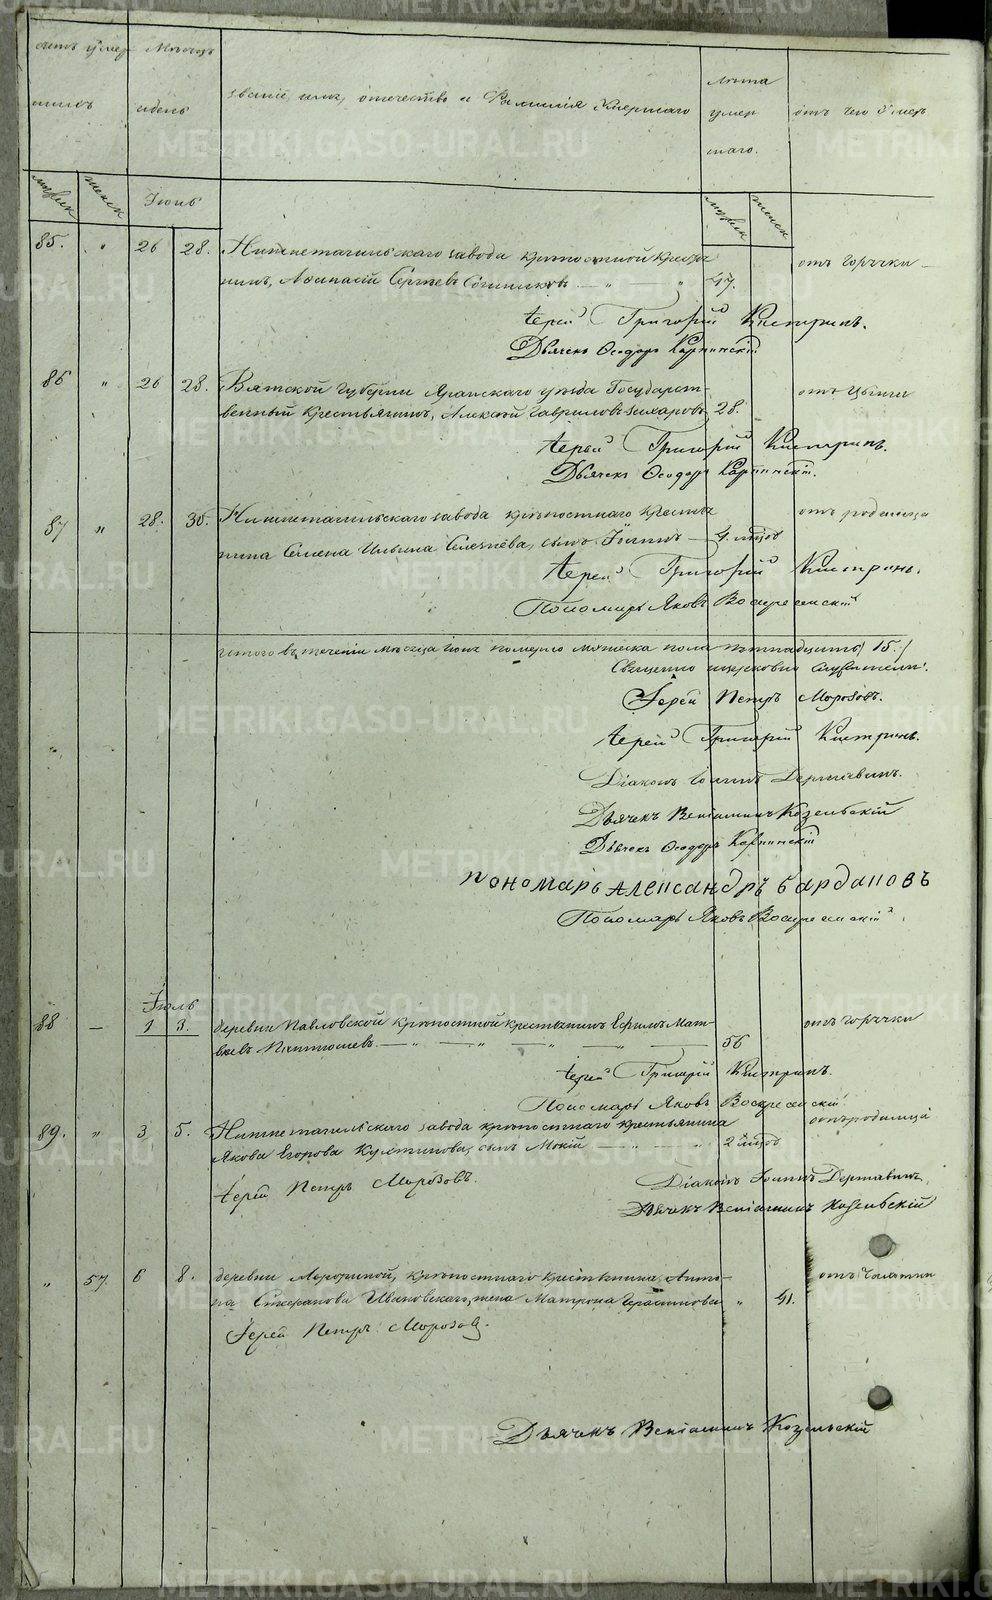 счетъ умер Мѣсяцъ
шихъ и день
званіе, имя, отечество и Фамилія Умершаго
лѣта умер шаго.
отъ чего Умеръ
мужск женск Іюнь мужск женск
85. " 26 28. Нижнетагильскаго завода крѣпостной крестья отъ горячки
нинъ, Афанасій Сергѣевъ 47.
Іерей Григорій Кистринъ.
Дьячекъ Ѳеодоръ Карпинскій
86 " 26 28. Вятской Губерніи Яранскаго уѣзда Государст-
венный крестьянинъ, Алексѣй Гавриловъ Захаровъ 28.
Іерей Григорій Кистринъ.
Дьячекъ Ѳеодоръ Карпинскій.
87 " 28. 30. Нижнетагильскаго завода крѣпостнаго крестья отъ родимца
нина Семена Ильина Селезнева, сынъ Іоаннъ
Іерей Григорій Кистринъ.
Пономарь Яковъ Воскресенскій
Итого въ теченіи мѣсяца Іюня померло мужеска пола пятнадцать / 15. /
Священно церковно служители:
Іерей Петръ Морозовъ.
Іерей Григорій Кистринъ.
Діаконъ Іоаннъ Державинъ.
Дьячекъ Веніаминъ Козельскій
Дьячекъ Ѳеодоръ Карпинскій
Пономарь Александръ
Пономарь Яковъ Воскресенскій.
Іюль
88 — 1 3. деревни Павловской крѣпостной крестьянинъ Ефимъ Мат- отъ горячки
вѣевъ 56
Іерей Григорій Кистринъ.
Пономарь Яковъ Воскресенскій
89. " 3 5. Нижнетагильскаго завода крѣпостнаго крестьянина отъ родимца
Якова Егорова сынъ Мокій 2 мѣсяцовъ
Іерей Петръ Морозовъ.
Діаконъ Іоаннъ Державинъ.
Дьячекъ Веніаминъ Козельскій
" 57 6 8. деревни крѣпостнаго крестьянина Анто- отъ чахотки
на Стефанова Ивановскаго, жена Матрона Герасимова " 41.
Іерей Петръ Морозовъ.
Дьячекъ Веніаминъ Козельскій
METRIKI.GASO-URAL.RU